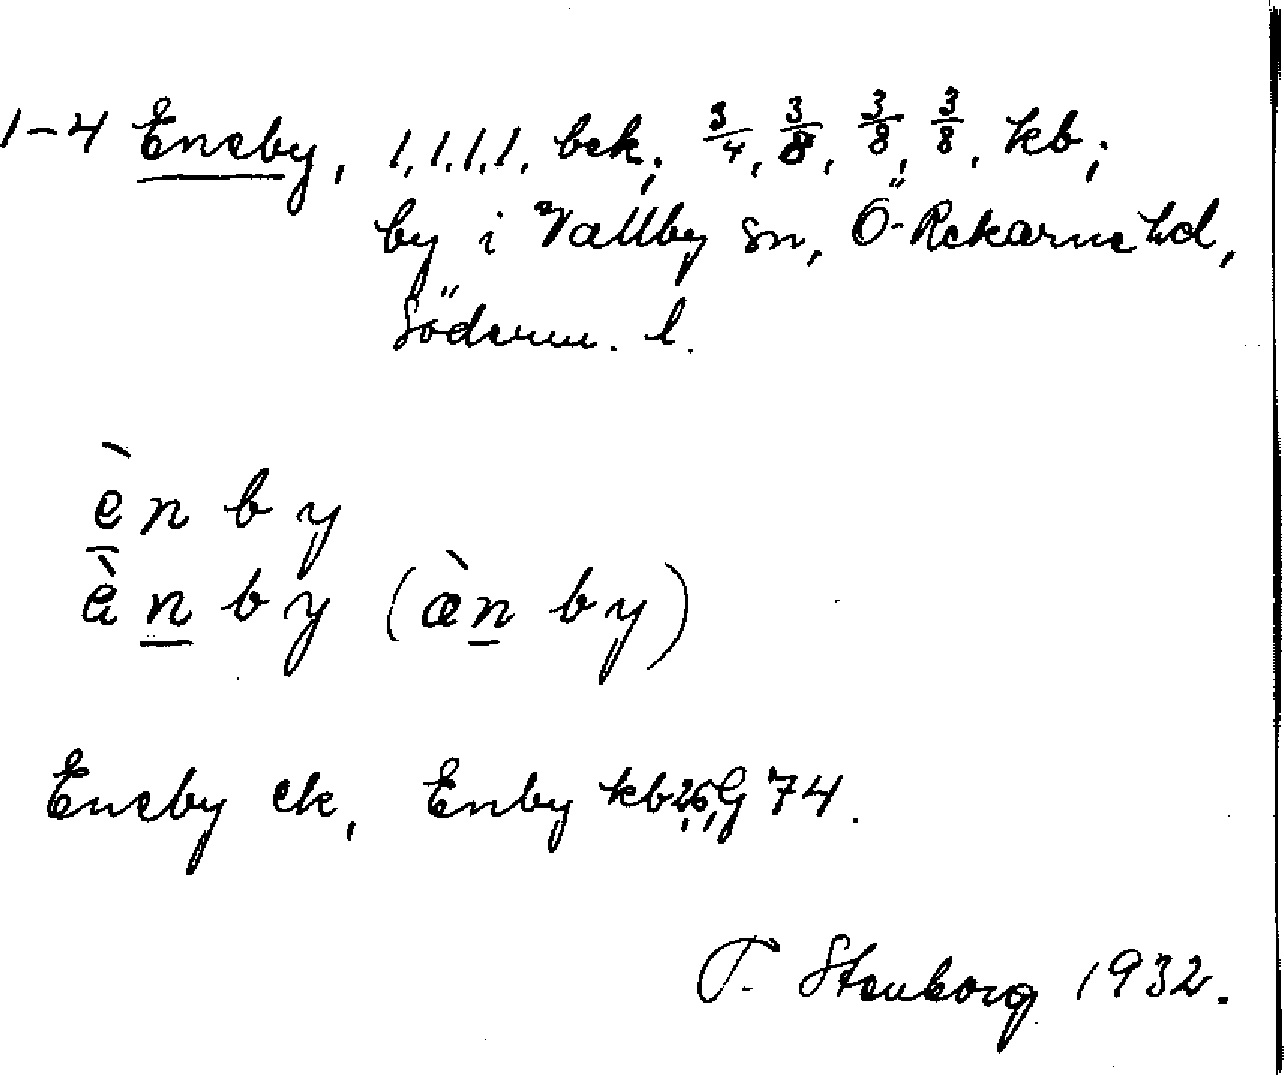 1-4 Eneby, 1,1,1,1, bek; 3/4, 3/8, 3/8, 3/8, kb;
by i Vallby sn, Ö-Rekarne hd,
Söderm. l.
ènby
ènby (ànby)
Eneby ek, Enby kb G 74.
T. Stenborg 1932.